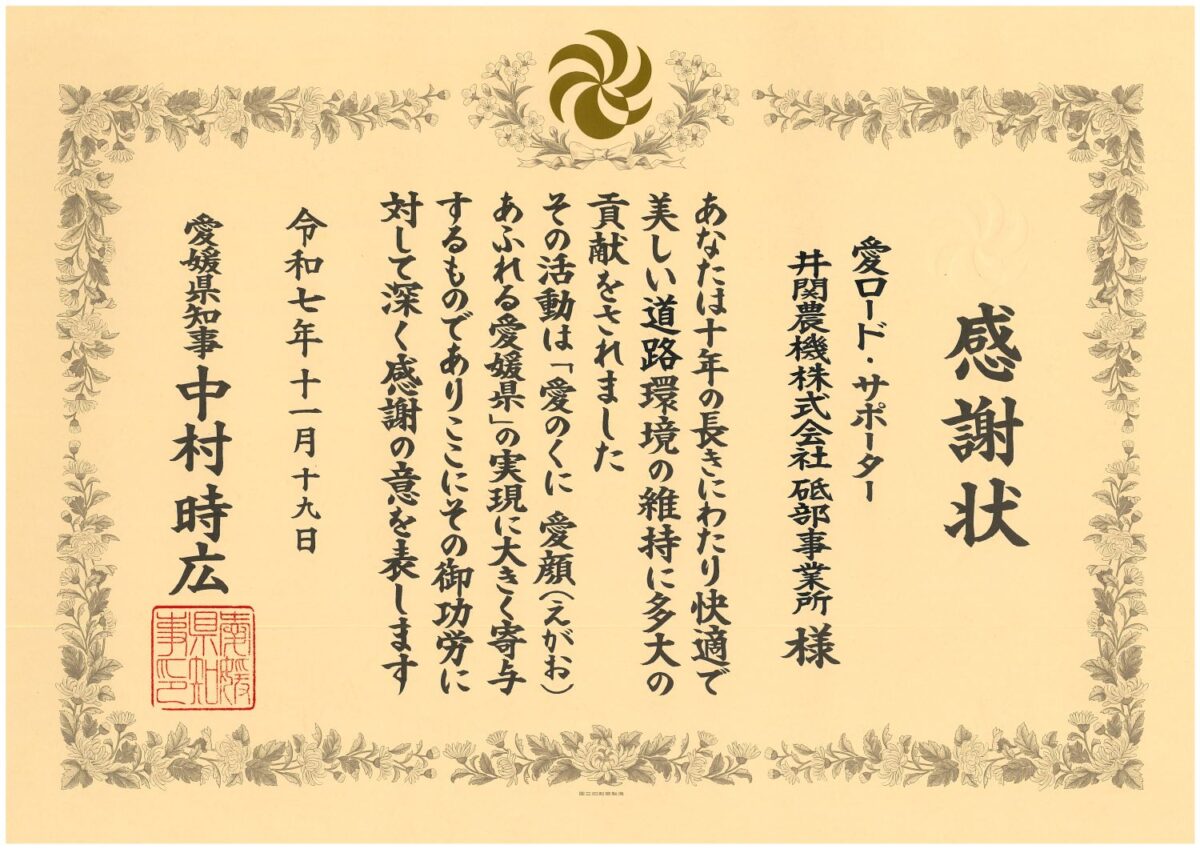 感謝状
愛ロード・サポーター
井関農機株式会社 砥部事業所 様
あなたは十年の長きにわたり快適で
美しい道路環境の維持に多大の
貢献をされました
その活動は「愛のくに 愛顔(えがお)
あふれる愛媛県」の実現に大きく寄与
するものでありここにその御功労に
対して深く感謝の意を表します
令和七年十一月十九日
愛媛県知事 中村時広
愛媛
県知
事印